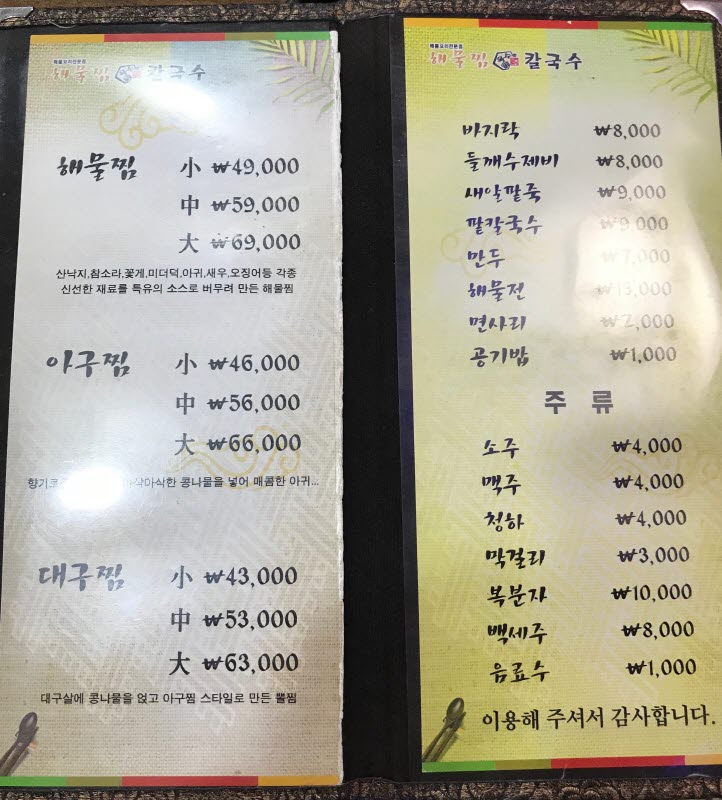 해물요리전문점
해물찜 칼국수
해물찜 小 ₩49,000
中 ₩59,000
大 ₩69,000
산낙지,참소라,꽃게,미더덕,아귀,새우,오징어등 각종
신선한 재료를 특유의 소스로 버무려 만든 해물찜
아구찜 小 ₩46,000
中 ₩56,000
大 ₩66,000
아삭아삭한 콩나물을 넣어 매콤한 아귀...
대구찜 小 ₩43,000
中 ₩53,000
大 ₩63,000
대구살에 콩나물을 얹고 아구찜 스타일로 만든 뽈찜
해물요리전문점
해물찜 칼국수
바지락 ₩8,000
들깨수제비 ₩8,000
새알팥죽 ₩9,000
팥칼국수 ₩9,000
만두 ₩7,000
해물전 ₩13,000
면사리 ₩2,000
공기밥 ₩1,000
주 류
소주 ₩4,000
맥주 ₩4,000
청하 ₩4,000
막걸리 ₩3,000
복분자 ₩10,000
백세주 ₩8,000
음료수 ₩1,000
이용해 주셔서 감사합니다.